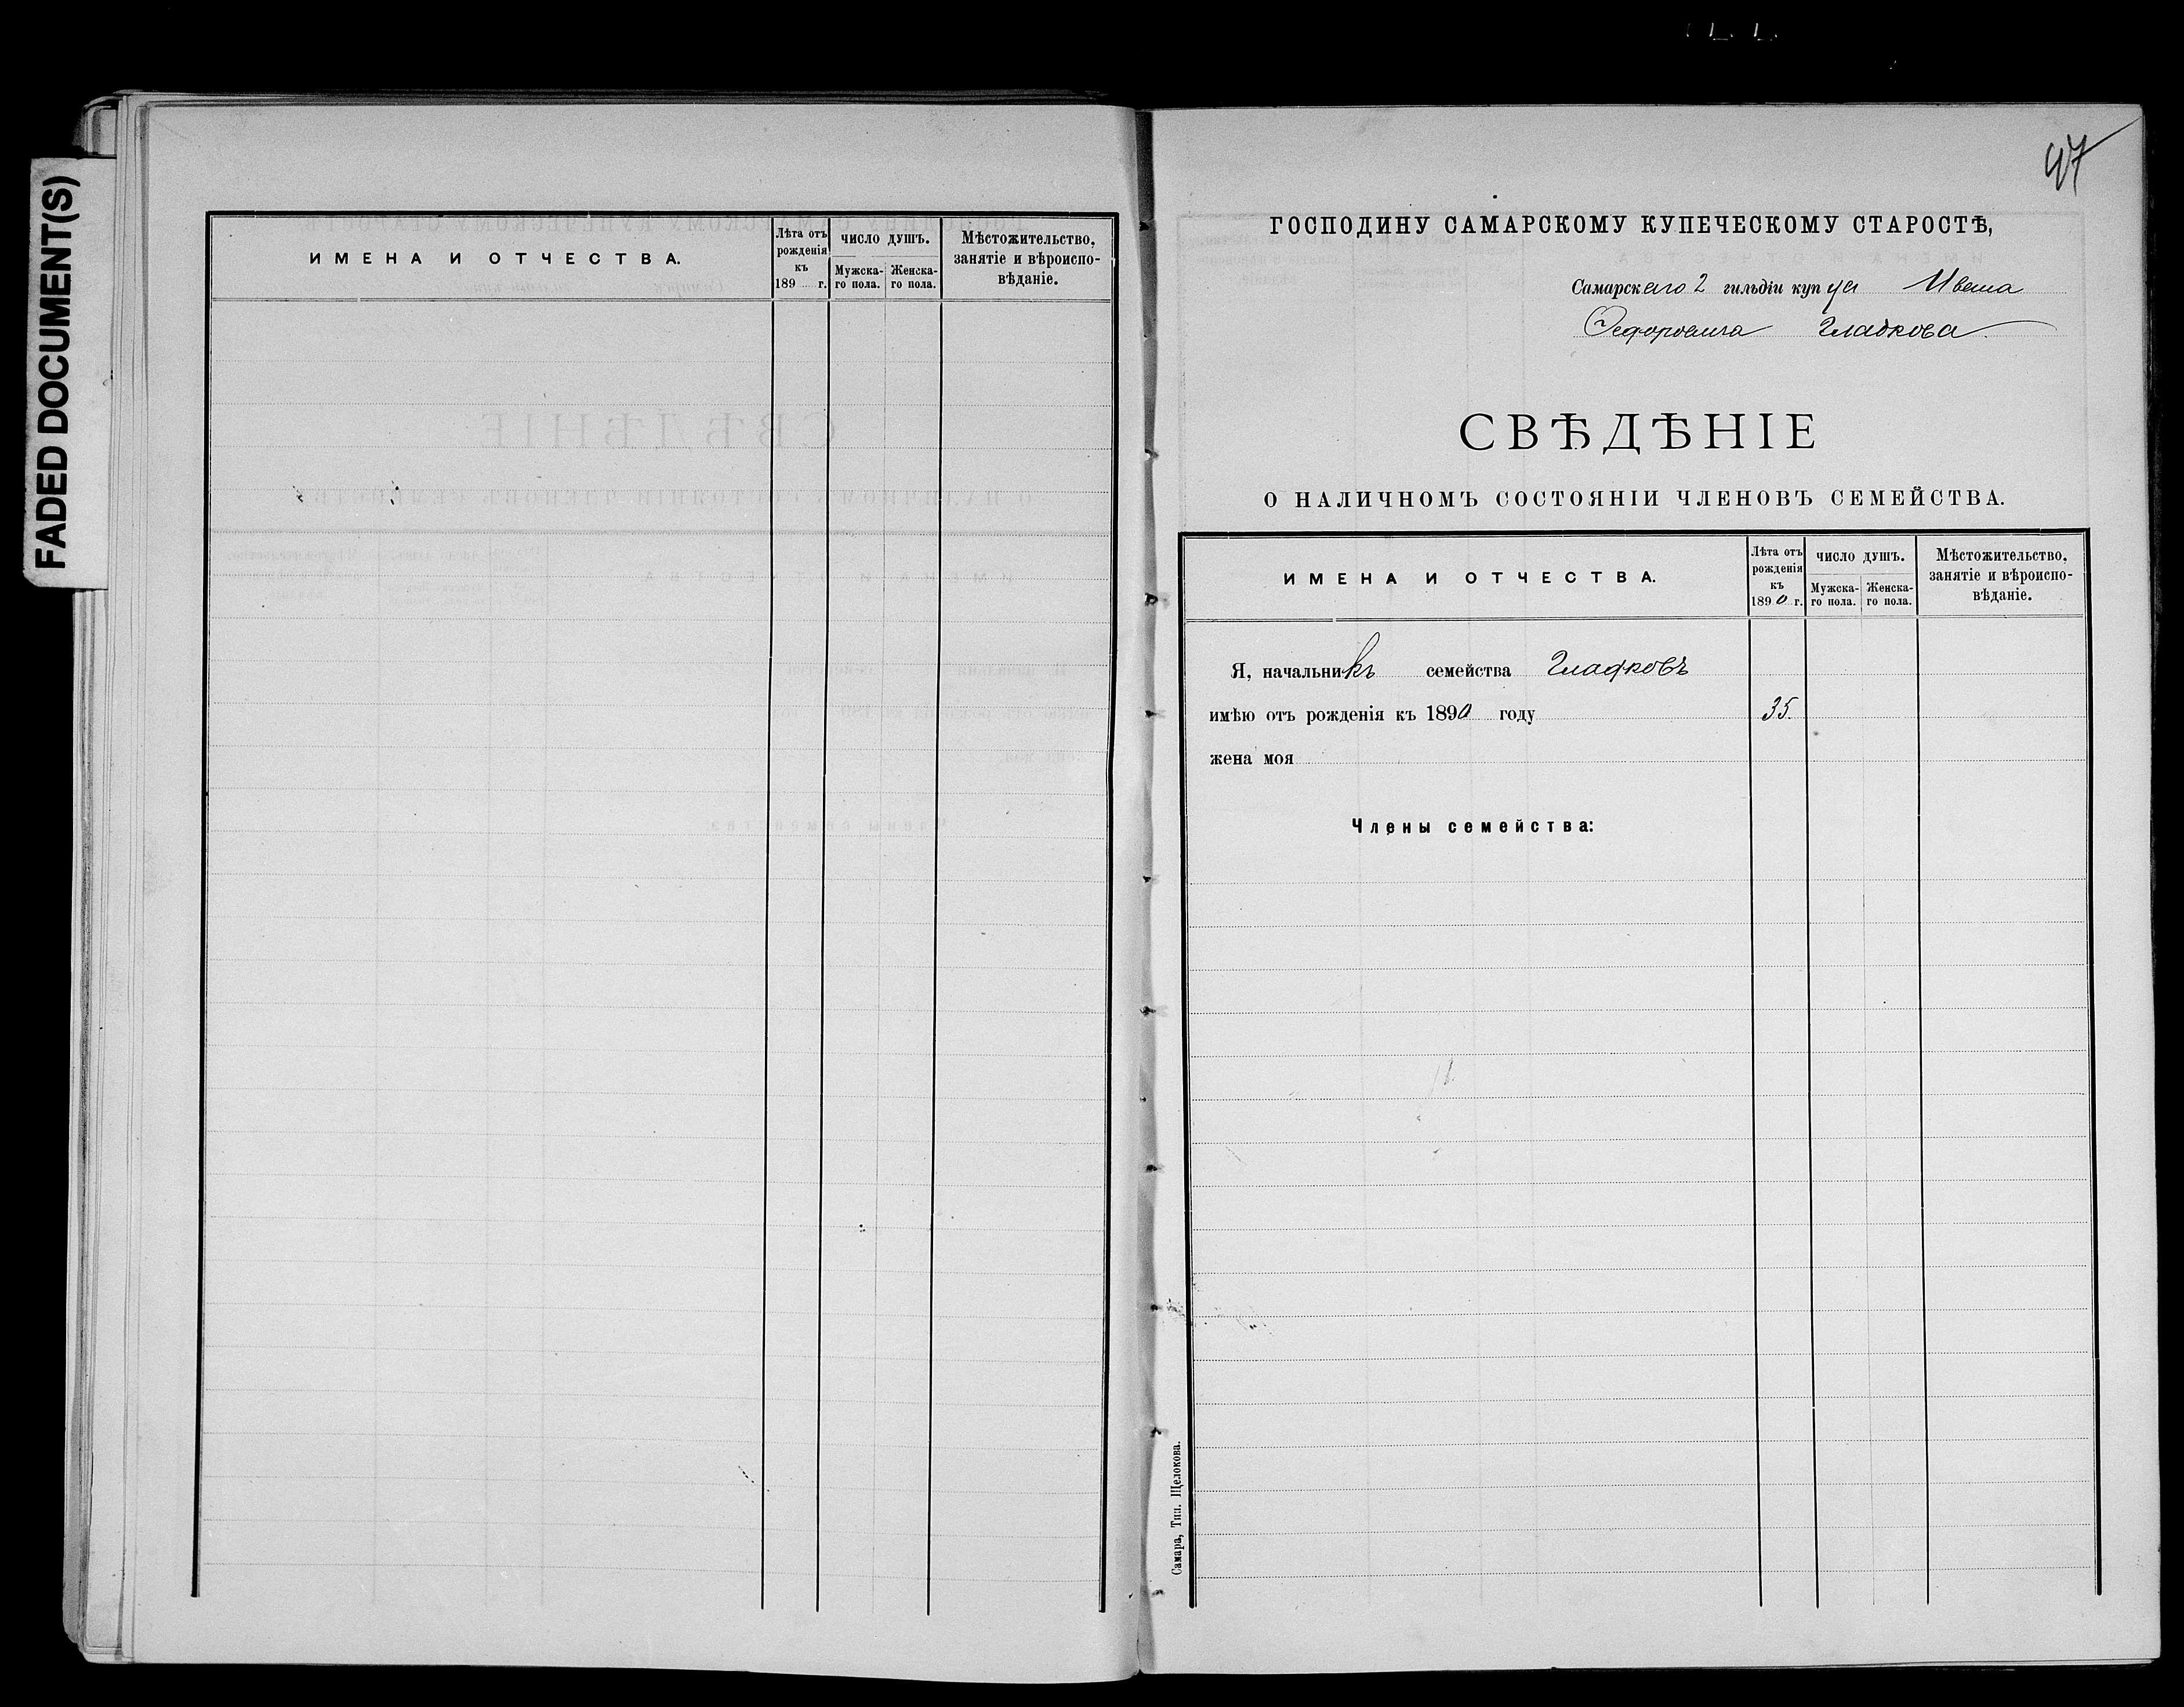 FADED DOCUMENT(S)
ИМЕНА И ОТЧЕСТВА.
Лѣта отъ рожденія къ 189 г.
ЧИСЛО ДУШЪ.
Мужска-го пола.
Женска-го пола.
Мѣстожительство, занятіе и вѣроиспо-вѣданіе.
47
ГОСПОДИНУ САМАРСКОМУ КУПЕЧЕСКОМУ СТАРОСТѢ,
Самарскаго 2 гильдіи купца Ивана
Федоровича Гладкова
СВѢДѢНІЕ
О НАЛИЧНОМЪ СОСТОЯНІИ ЧЛЕНОВЪ СЕМЕЙСТВА.
ИМЕНА И ОТЧЕСТВА.
Лѣта отъ рожденія къ 1890 г.
ЧИСЛО ДУШЪ.
Мужска-го пола.
Женска-го пола.
Мѣстожительство, занятіе и вѣроиспо-вѣданіе.
Я, начальникъ семейства Гладковъ
имѣю отъ рожденія къ 1890 году 35.
жена моя
Члены семейства:
Самара, Тип. Щелокова.